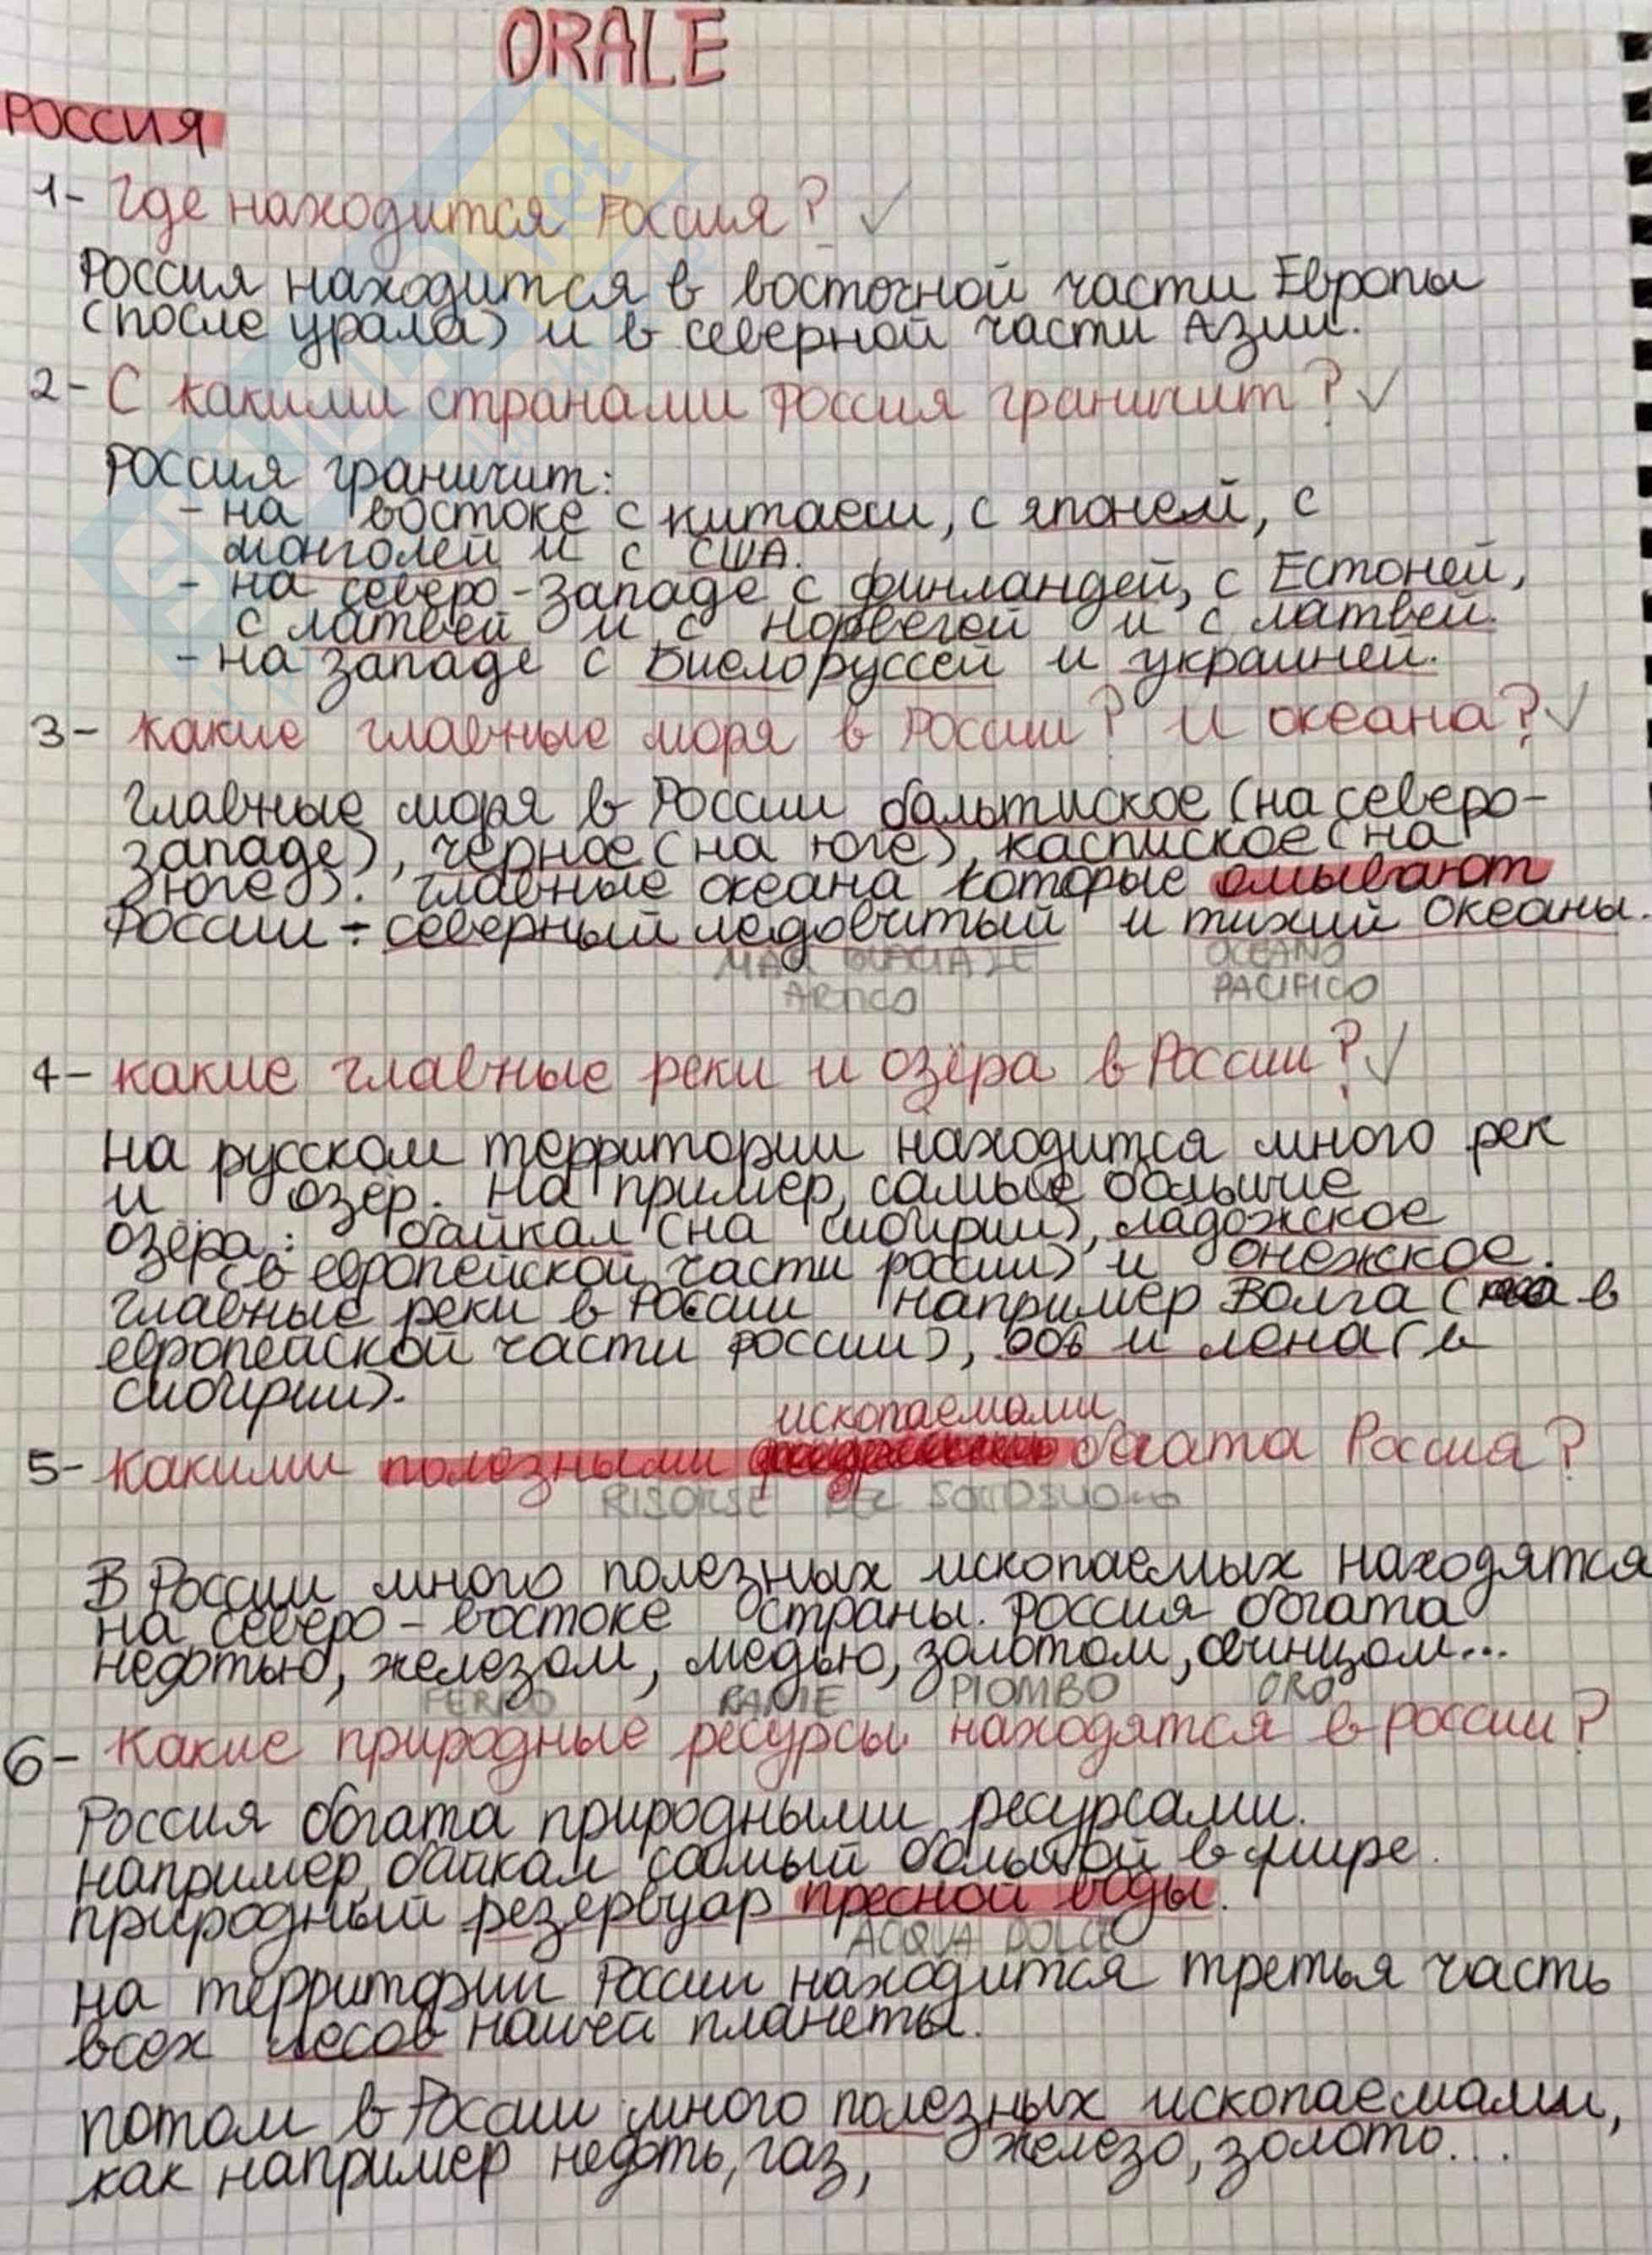 ORALE
РОССИЯ
1- Где находится Россия? ✓
Россия находится в восточной части Европы
(после урала) и в северной части Азии.
2- С какими странами Россия граничит? ✓
Россия граничит:
- на востоке с китаем, с японей, с
монголей и с США.
- на северо-западе с финландей, с Естоней,
с латвей и с Норвегей и с латвей.
- на западе с Биелоруссей и украиней.
3- Какие главные моря в России? И океана? ✓
Главные моря в России бальтиское (на северо-
западе), чёрное (на юге), касписκое (на
юге). главные океана которые омывают
России - северный ледовитый и тихий океаны.
MAR GLACIALE OCEANO
ARTICO PACIFICO
4- Какие главные реки и озёра в России? ✓
На русском территории находится много рек
и озёр. На пример, самые большие
озёра: байкал (на сибирии), ладожское
(в европейской части россии) и онежское.
главные реки в России например Волга (в
европейской части россии), обь и лена (в
сибирии).
ископаемами
5- Какими полезными богата Россия?
RISORSE DEL SOTTOSUOLO
В России много полезных ископаемых находятся
на северо-востоке страны. Россия богата
нефтью, железом, медью, золотом, свинцом...
FERRO RAME PIOMBO ORO
6- Какие природные ресурсы находятся в россии?
Россия богата природными ресурсами.
например, байкал самый большой в мире.
природный резервуар пресной воды.
ACQUA DOLCE
на территории России находится третья часть
всех лесов нашей планеты.
потом в России много полезных ископаемами,
как например нефть, газ, железо, золото...